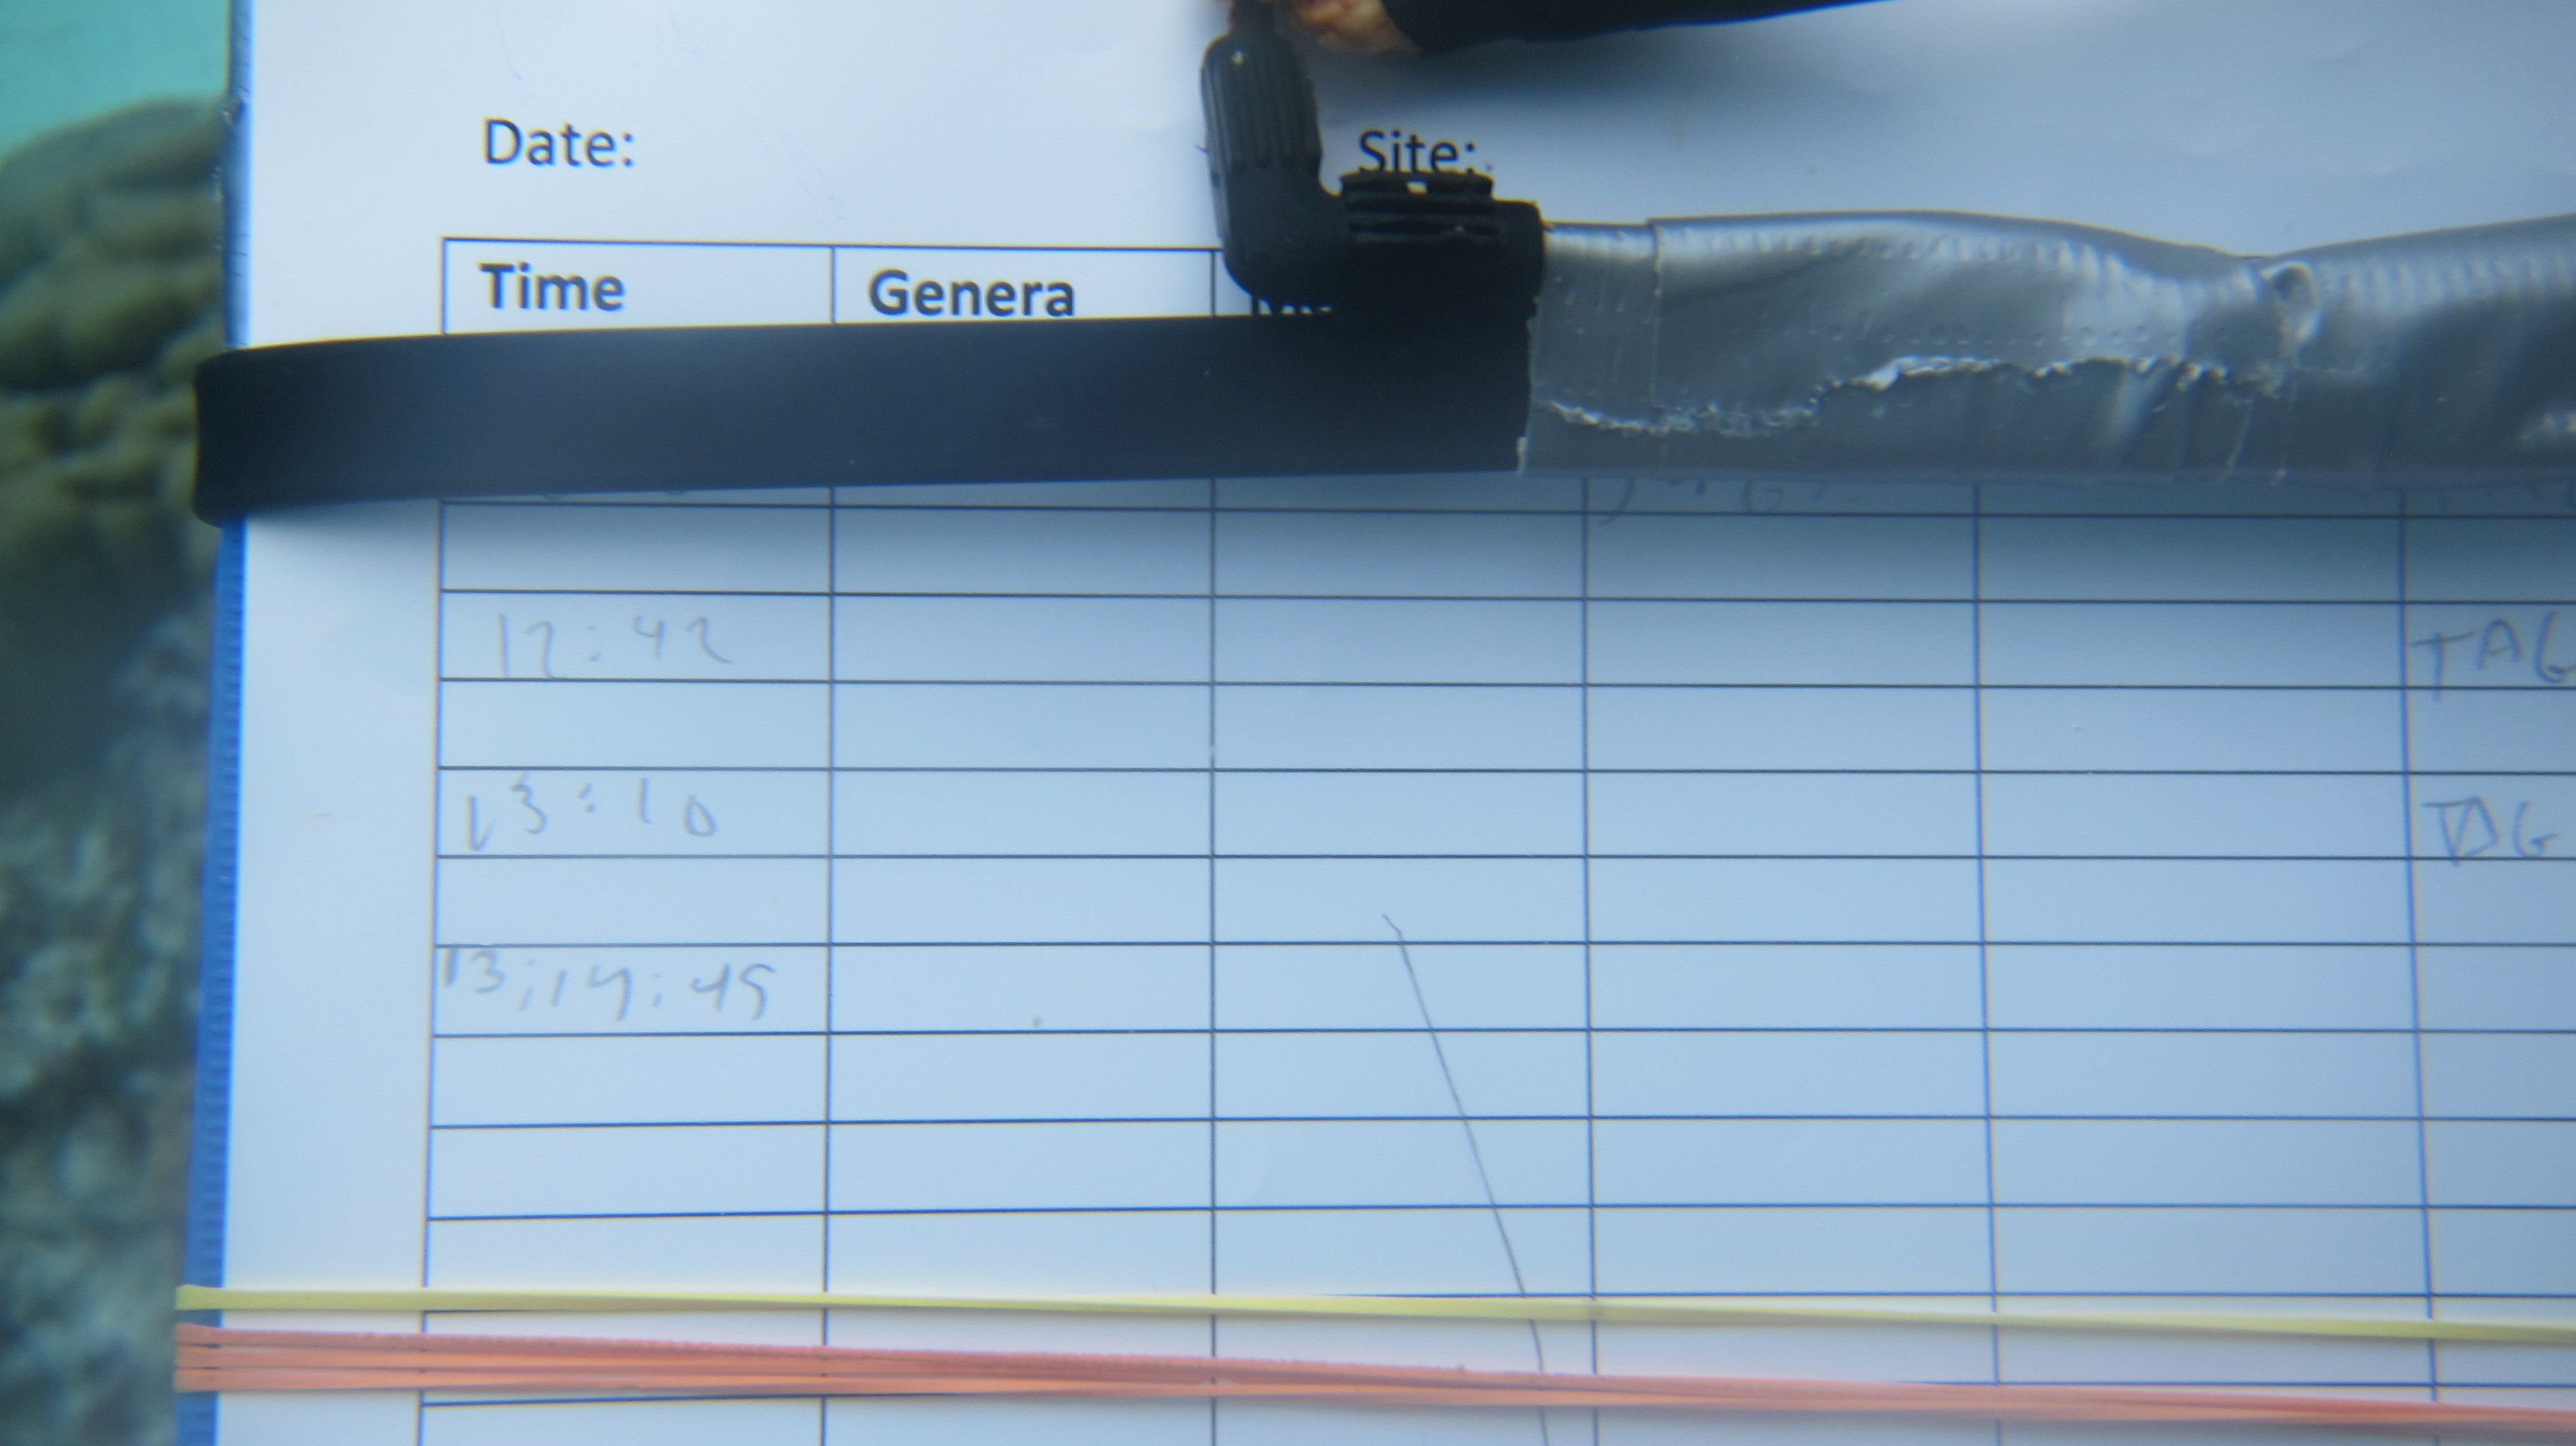 Date: Site:
Time Genera
12:42 TAG
13:10 TAG
13:14:45